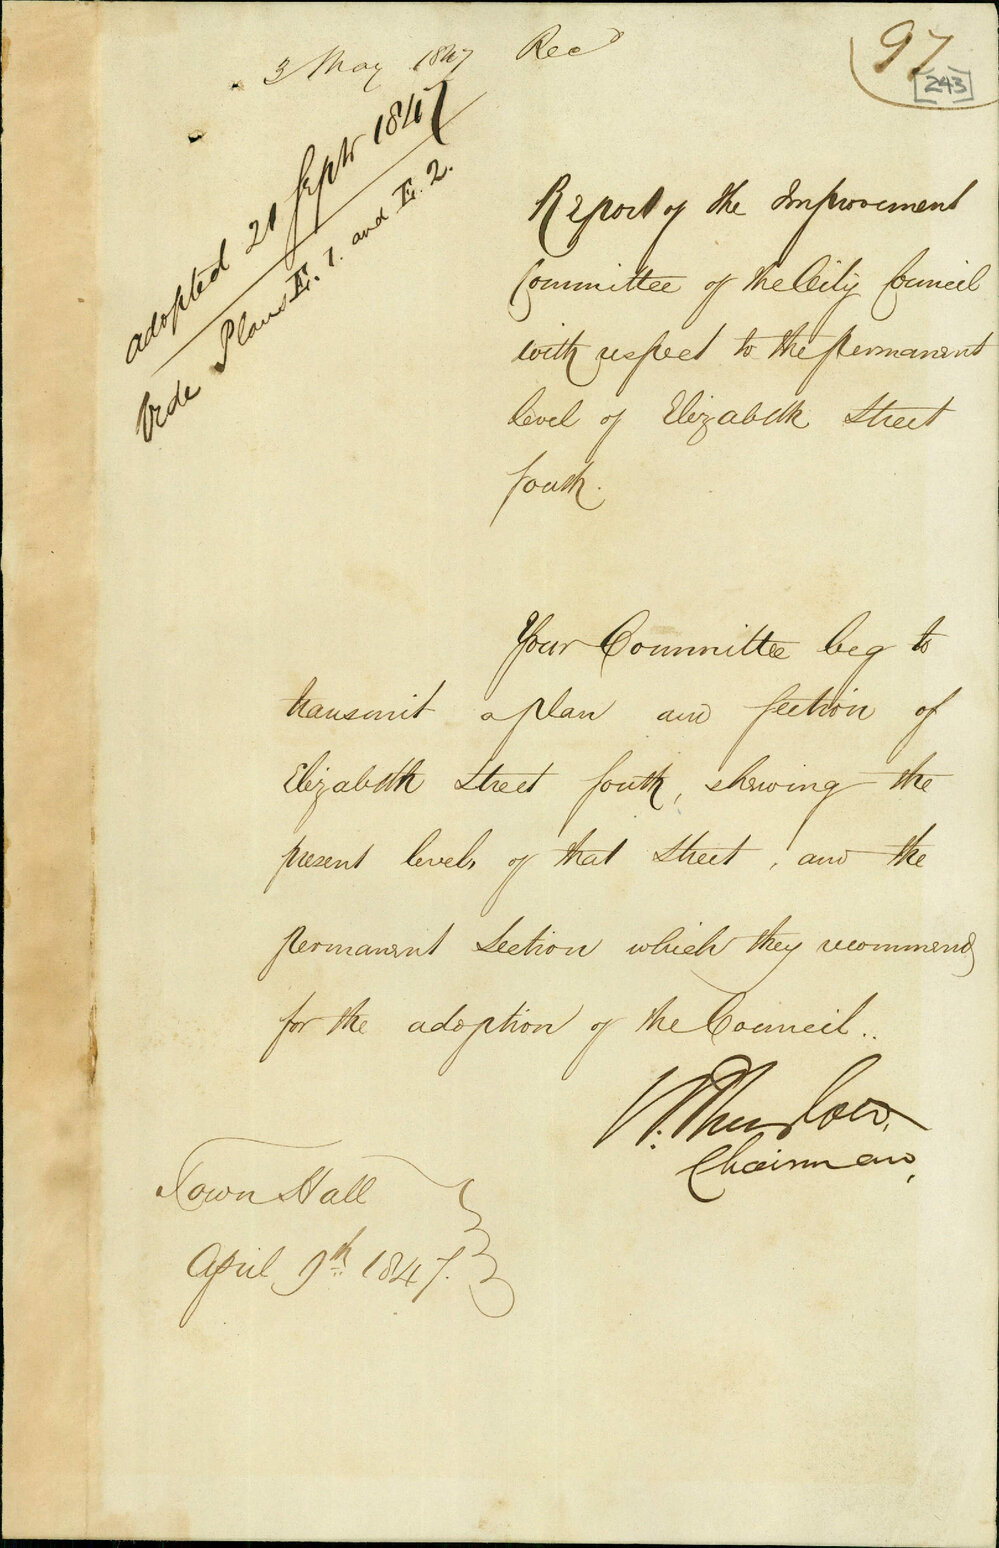 3 May 1847 Recd
97
[243]
adopted 21 Septr 1847
Vide Plans E. 1. and E. 2.
Report of the Improvement
Committee of the City Council
with respect to the permanent
level of Elizabeth Street
South.
Your Committee beg to
transmit a plan and Section of
Elizabeth Street South, shewing the
present levels of that Street, and the
permanent Section which they recommend
for the adoption of the Council..
W. Thurlow,
Chairman,
Town Hall
April 9th 1847.